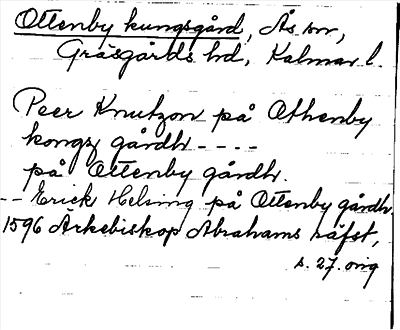 Ottenby kungsgård, Ås sn,
Gräsgårds hd, Kalmar l.
Peer Knutzon på Othenby
kongz gårdh - - - -
på Ottenby gårdh.
-- Erick Helsing på Ottenby gårdh.
1596 Ärkebiskop Abrahams räfst,
s. 27. orig